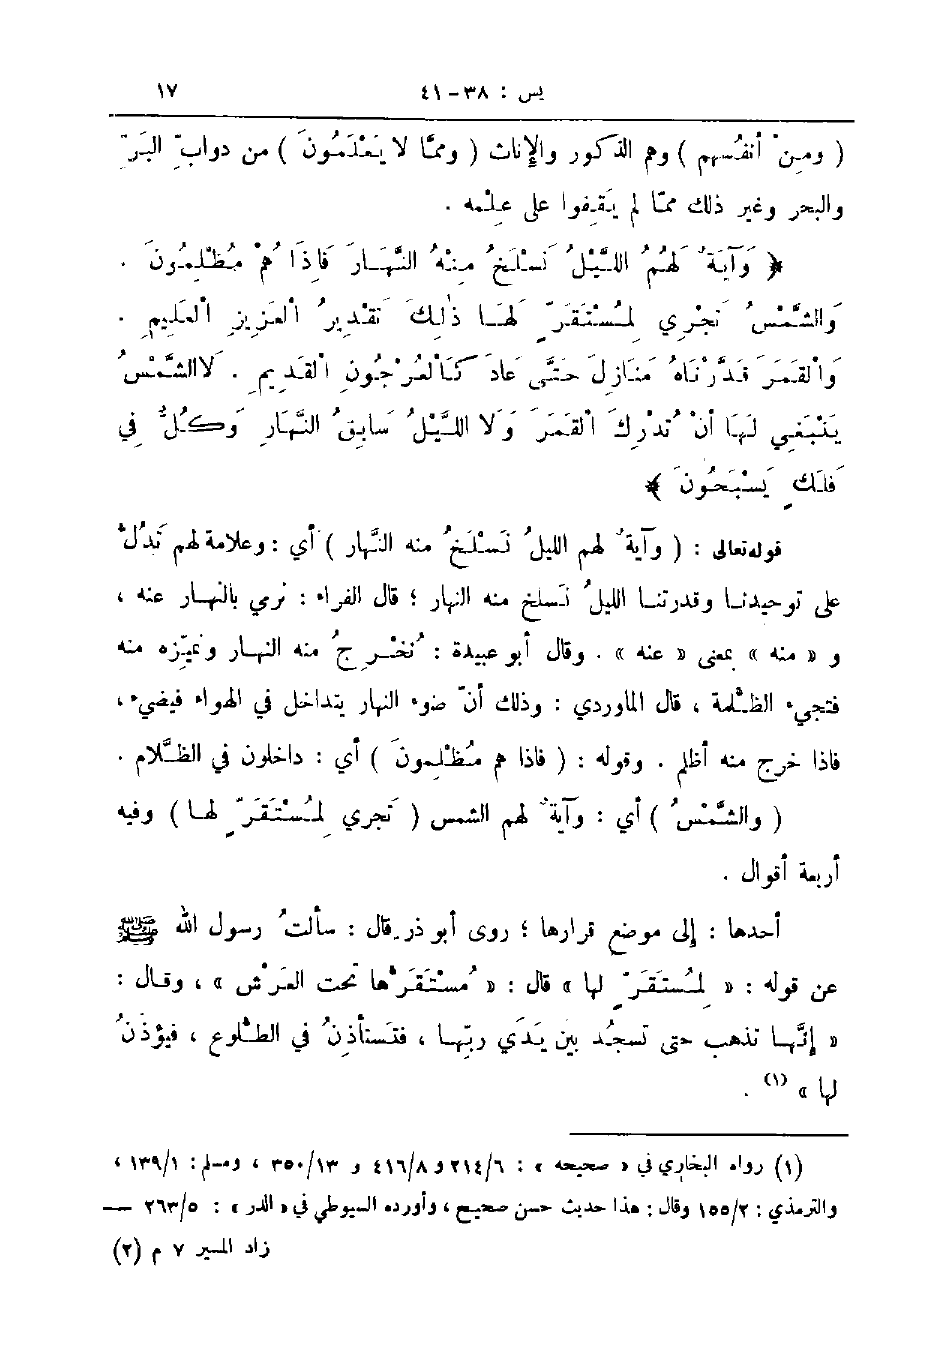 يس : ٣٨ - ٤١ ١٧
( ومِنْ أنفُسهم ) وهم الذكور والإناث ( وممَّا لا يَعْلَمُونَ ) من دوابِّ البَرِّ
والبحر وغير ذلك ممّا لم يَقِفوا على عِلْمه .
﴿ وَآيَةٌ لَهُمُ اللَّيْلُ نَسْلَخُ مِنْهُ النَّهَارَ فَإِذَا هُمْ مُظْلِمُونَ .
وَالشَّمْسُ تَجْرِي لِمُسْتَقَرٍّ لَهَا ذٰلِكَ تَقْدِيرُ الْعَزِيزِ الْعَلِيمِ .
وَالْقَمَرَ قَدَّرْنَاهُ مَنَازِلَ حَتَّى عَادَ كَالْعُرْجُونِ الْقَدِيمِ . لَا الشَّمْسُ
يَنْبَغِي لَهَا أَنْ تُدْرِكَ الْقَمَرَ وَلَا اللَّيْلُ سَابِقُ النَّهَارِ وَكُلٌّ فِي
فَلَكٍ يَسْبَحُونَ ﴾
قوله تعالى : ( وآيةٌ لهم الليلُ نَسْلَخُ منه النَّهار ) أي : وعلامة لهم تَدُلُّ
على توحيدنا وقدرتنا الليلُ نَسلخ منه النهار ؛ قال الفراء : نرمي بالنهار عنه ،
و « منه » بمعنى « عنه » . وقال أبو عبيدة : نُخْرِجُ منه النهار ونميِّزه منه
فتجيء الظُّلمة ، قال الماوردي : وذلك أنّ ضوء النهار يتداخل في الهواء فيضيء ،
فاذا خرج منه أظلم . وقوله : ( فاذا هم مُظْلِمونَ ) أي : داخلون في الظَّلام .
( والشَّمْسُ ) أي : وآيةٌ لهم الشمس ( تَجري لِمُسْتَقَرٍّ لها ) وفيه
أربعة أقوال .
أحدها : إلى موضع قرارها ؛ روى أبو ذر قال : سألتُ رسول الله ﷺ
عن قوله : « لِمُستَقَرٍّ لها » قال : « مُسْتَقَرُّها تحت العَرْش » ، وقال :
« إنَّها تذهب حتى تسجُد بين يَدَي ربِّها ، فتستأذنُ في الطُّلوع ، فيؤذَنُ
لها » (١) .
(١) رواه البخاري في « صحيحه » : ٢١٤/٦ و ٤١٦/٨ و ٣٥٠/١٣ ، ومسلم : ١٣٩/١ ،
والترمذي : ١٥٥/٢ وقال : هذا حديث حسن صحيح ، وأورده السيوطي في « الدر » : ٢٦٣/٥ —
زاد المسير ٧ م (٢)